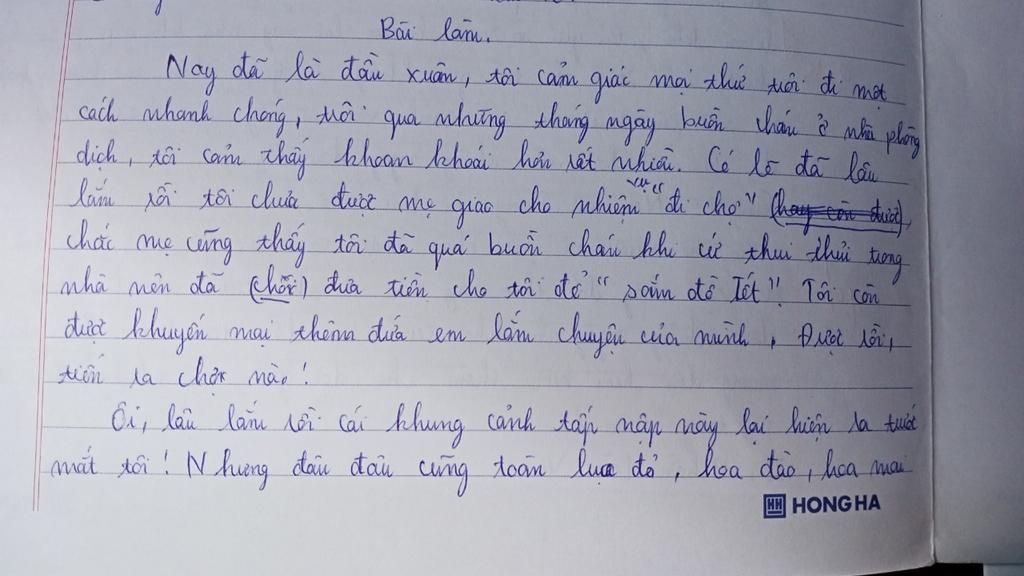 Bài làm.
Nay đã là đầu xuân, tôi cảm giác mọi thứ trôi đi một
cách nhanh chóng, trôi qua những tháng ngày buồn chán ở nhà phòng
dịch, tôi cảm thấy khoan khoái hơn rất nhiều. Có lẽ đã lâu
lắm rồi tôi chưa được mẹ giao cho nhiệm vụ "đi chợ" (hay còn được),
chắc mẹ cũng thấy tôi đã quá buồn chán khi cứ thui thủi trong
nhà nên đã (chốt) đưa tiền cho tôi để "sắm đồ Tết". Tôi còn
được khuyến mại thêm đứa em lắm chuyện của mình, Được rồi,
tiến ra chợ nào!
Ôi, lâu lắm rồi cái khung cảnh tấp nập này lại hiện ra trước
mắt tôi! Nhưng đâu đâu cũng toàn lụa đỏ, hoa đào, hoa mai
HH HONG HA